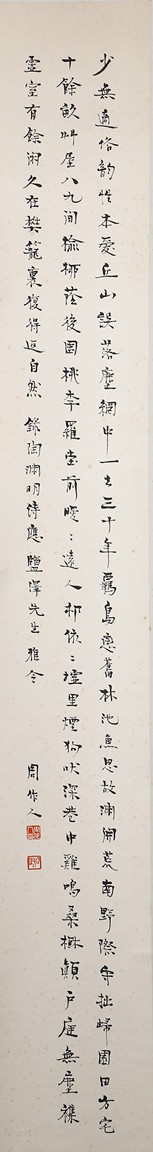 少無適俗韵性本愛丘山誤落塵網中一去三十年羈鳥戀舊林池魚思故淵開荒南野際守拙歸園田方宅
十餘畝艸屋八九間榆栁蔭後園桃李羅堂前曖〻遠人邨依〻墟里煙狗吠深巷中雞鳴桑樹顛戶庭無塵襍
虛室有餘閑久在樊籠裏復得返自然 錄陶淵明詩應 鹽澤先生雅令
周作人